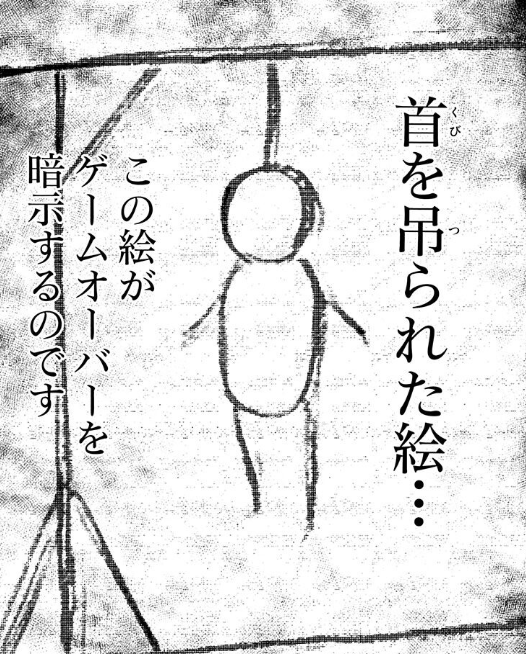 首を吊られた絵…
この絵が
ゲームオーバーを
暗示するのです